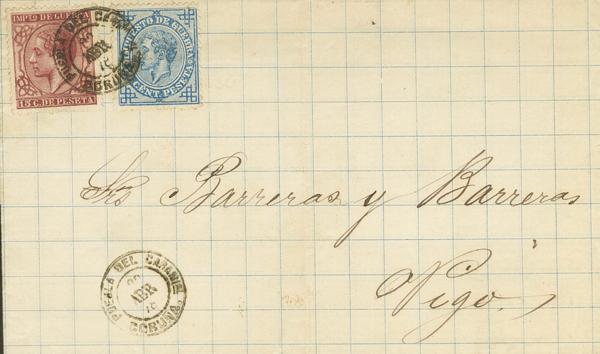 IMPTO DE GUERRA
15 C. DE PESETA
IMPUESTO DE GUERRA
CENT. PESETA
PUEBLA DEL CARAMIÑAL
ABR
CORUÑA
Sres Barreras y Barreras
Vigo.
PUEBLA DEL CARAMIÑAL
ABR
CORUÑA